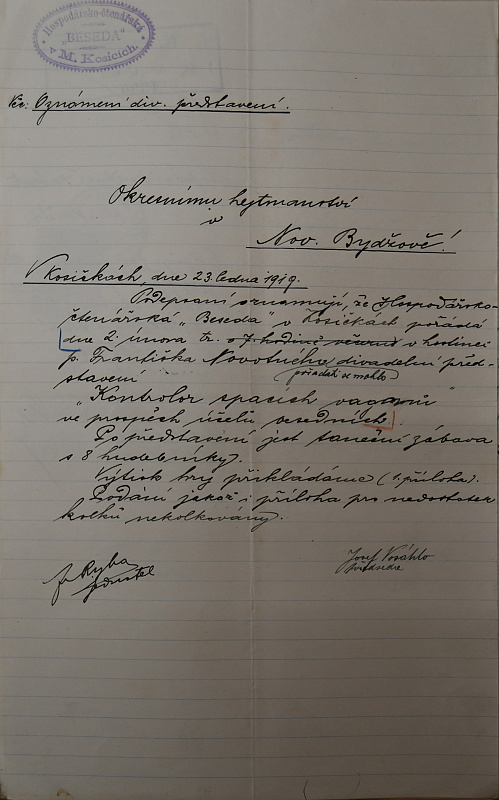 Hospodářsko-čtenářská
"BESEDA"
v M. Kosicích.
Věc: Oznámení div. představení.
Okresnímu hejtmanství
v
Nov. Bydžově!
V Kosičkách, dne 23. ledna 1919.
Podepsaní oznamují, že Hospodářsko-
čtenářská „Beseda" v Kosičkách pořádá
dne 2. února t. r. o 7. hodině večerní v hostinci
p. Františka Novotného divadelní před-
stavení
pořádati se mohlo
„Kontrolor spacích vagonů"
ve prospěch účelů besedních.
Po představení jest taneční zábava
s 8 hudebníky.
Výtisk hry přikládáme (1. příloha).
Podání jakož i příloha pro nedostatek
kolků nekolkovány.
Fr. Ryba
jednatel
Josef Vosáhlo
předseda